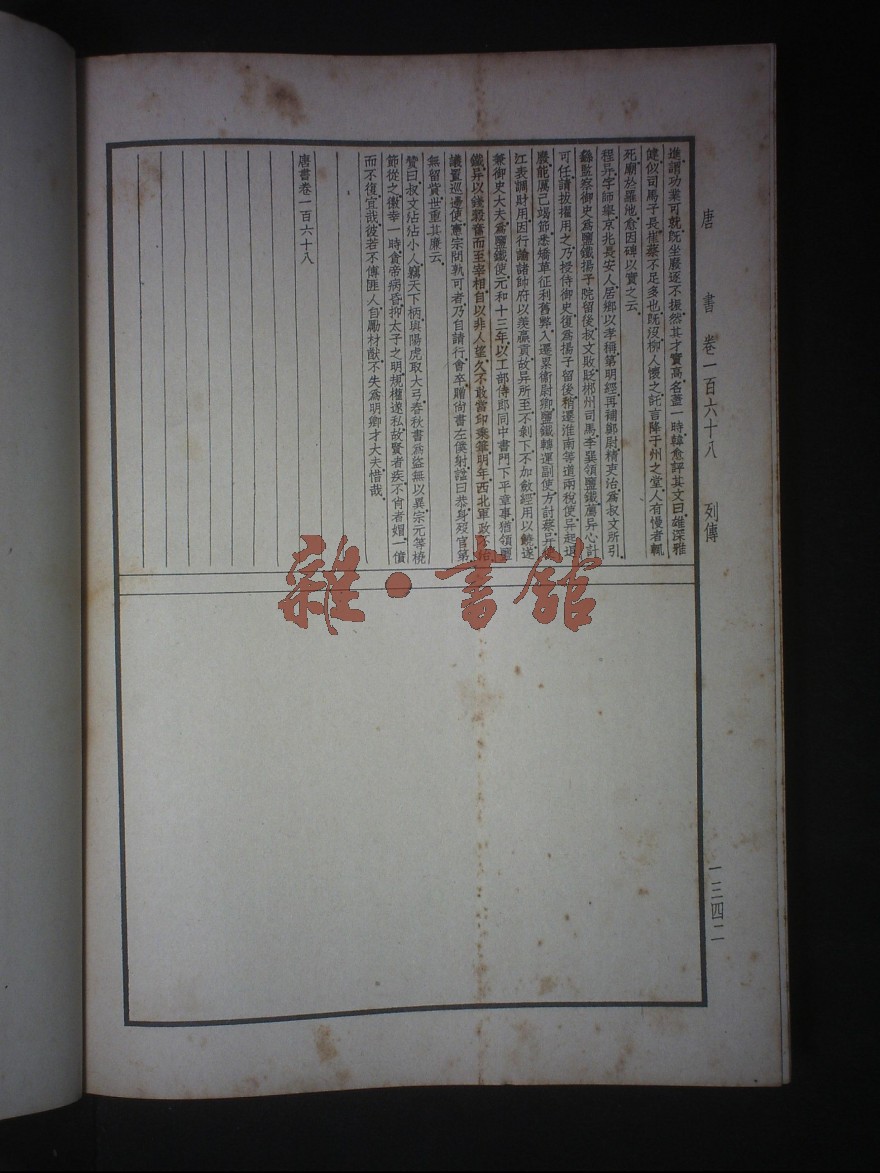 唐書 卷一百六十八 列傳
一三四二
進謂功業可就既坐廢逐不振然其才實高名蓋一時韓愈評其文曰雄深雅
健似司馬子長崔蔡不足多也既沒柳人懷之託言降于州之堂人有慢者輒
死廟於羅池愈因碑以實之云
程异字師舉京兆長安人居鄉以孝稱第明經再補鄭尉精吏治為叔文所引
錄監察御史為鹽鐵揚子院留後叔文敗貶郴州司馬李巽領鹽鐵薦异心計
可任請拔擢用之乃授侍御史復為揚子留後稍遷淮南等道兩稅使异起退
廢能厲己竭節悉矯革征利舊弊入遷累衞尉卿鹽鐵轉運副使方討蔡异使
江表調財用因行諭諸帥府以羨贏貢故异所至不剝下不加斂經用以饒遂
兼御史大夫為鹽鐵使元和十三年以工部侍郎同中書門下平章事猶領鹽
鐵异以錢穀奮而至宰相自以非人望久不敢當印秉筆明年西北軍政不治
議置巡邊使憲宗問孰可者乃自請行會卒贈尙書左僕射諡曰恭身歿官第
無留貲世重其廉云
贊曰叔文沾沾小人竊天下柄與陽虎取大弓春秋書為盜無以異宗元等橈
節從之徼幸一時貪帝病昏抑太子之明規權遂私故賢者疾不肖者媢一僨
而不復宜哉彼若不傅匪人自勵材猷不失為明卿才大夫惜哉
唐書卷一百六十八
雜·書館